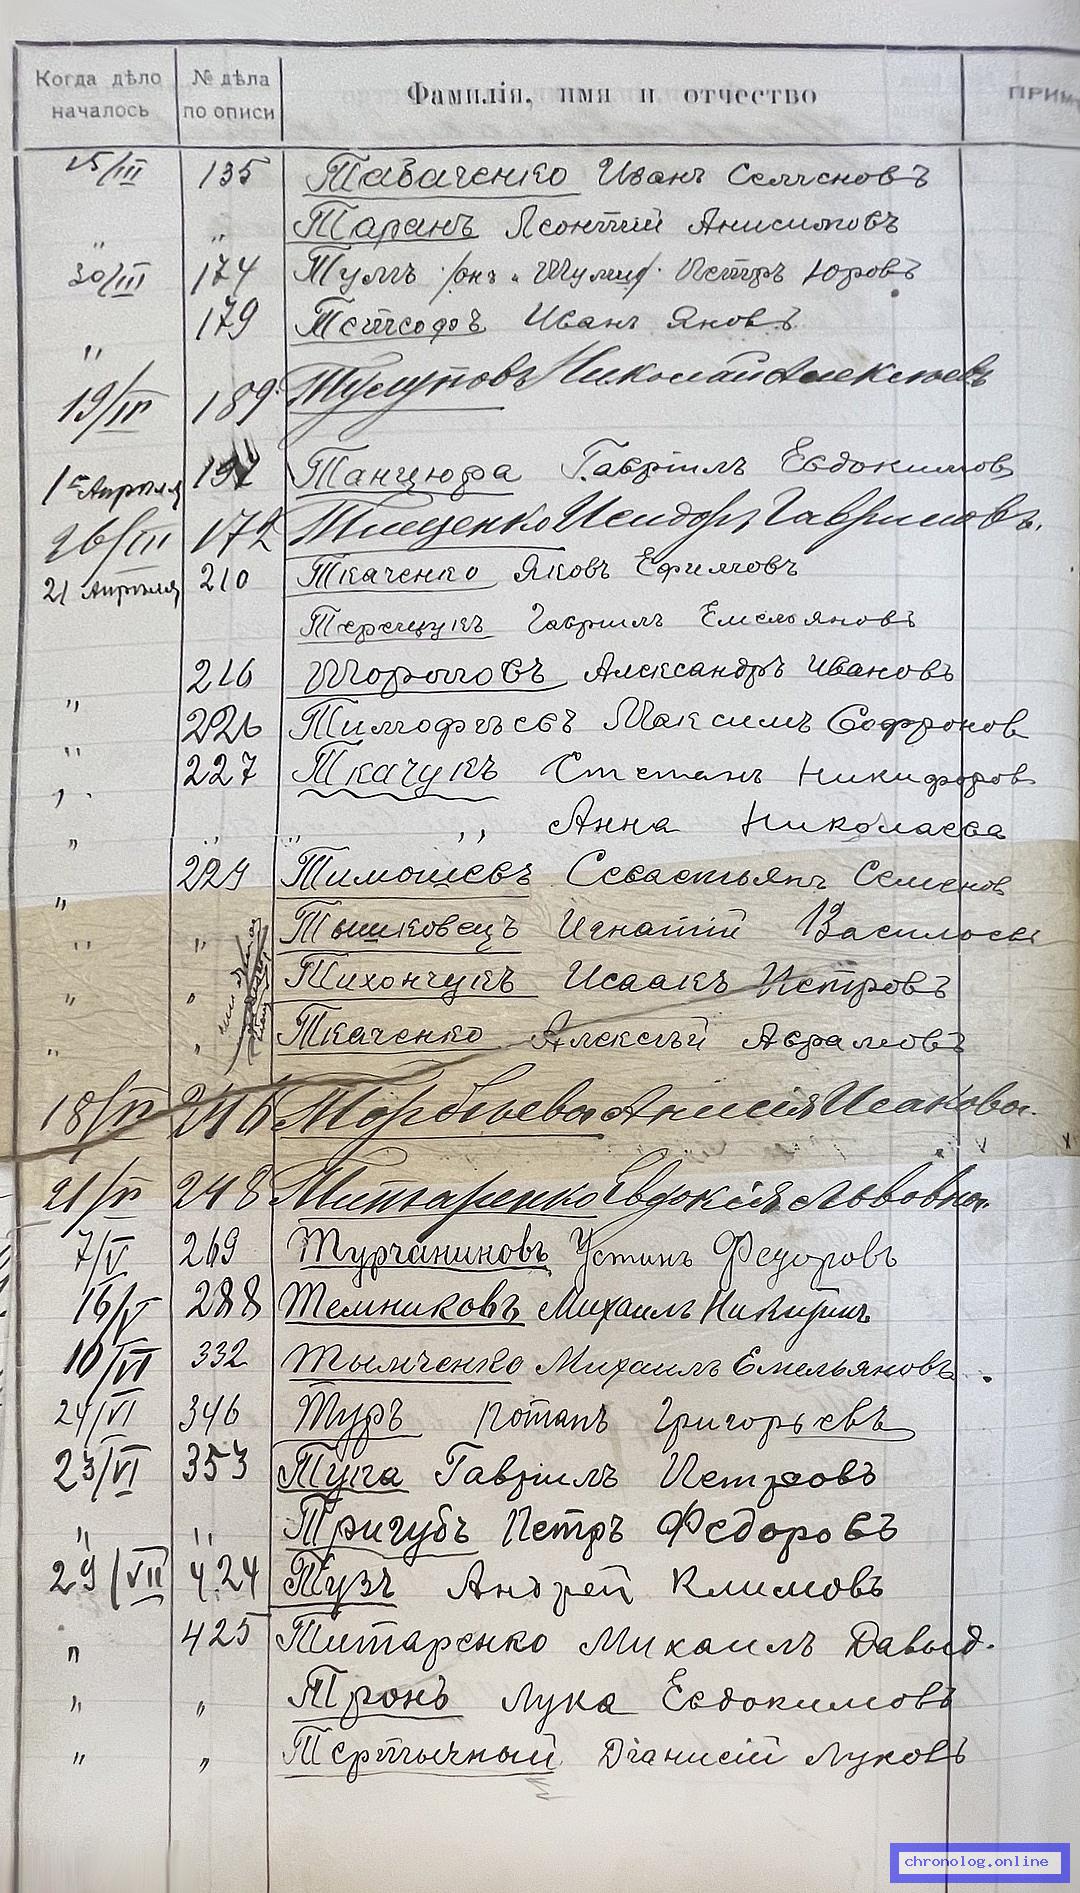 Когда дѣло началось № дѣла по описи Фамилія, имя и отчество ПРИМ
15/III 135 Табаченко Иванъ Семеновъ
" " Таранъ Леонтій Анисимовъ
30/III 174 Тумъ /онъ Шумъ/ Петръ Юровъ
" 179 Иванъ Яковъ
19/IV 189 Тулуповъ Николай Алексѣевъ
1го Апрѣля 197 Танцюра Гавріилъ Евдокимов
26/III 172 Тищенко Исидоръ Гавриловъ.
21 Апрѣля 210 Ткаченко Яковъ Ефимовъ
Терещукъ Гавріилъ Емельяновъ
" 216 Александръ Ивановъ
" 226 Тимофѣевъ Максимъ Софронов
" 227 Ткачукъ Степанъ Никифоров
" " " " Анна Николаева
" 229 Тимошевъ Севастьянъ Семенов
" " Тышковецъ Игнатій Васильев
" " Тихончукъ Исаакъ Петровъ
" " Ткаченко Алексѣй Аврамовъ
18/IV 246 Анисія Исакова.
21/IV 248 Титаренко Евдокія Львовна.
7/V 269 Турчаниновъ Устинъ Федоровъ
16/V 288 Темниковъ Михаилъ Никитинъ
10/VI 332 Тымченко Михаилъ Емельяновъ.
24/VI 346 Туръ Потапъ Григорьевъ
23/VI 353 Тупа Гавріилъ Петровъ
" " Тригубъ Петръ Федоровъ
29/VII 424 Тузъ Андрей Климовъ
" 425 Титаренко Михаилъ Давыд.
" " Тронъ Лука Евдокимовъ
" " Тертычный Діанисій Луковъ
chronolog.online